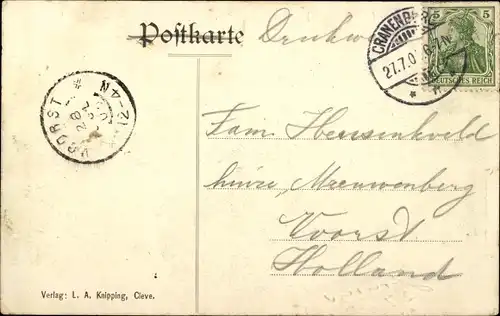 Postkarte
CRANENBURG
27.7.0
5 5
DEUTSCHES REICH
VOORST
12-4N
Fam Heusinkveld
huize Meeuwenberg
Voorst
Holland
Verlag: L. A. Knipping, Cleve.